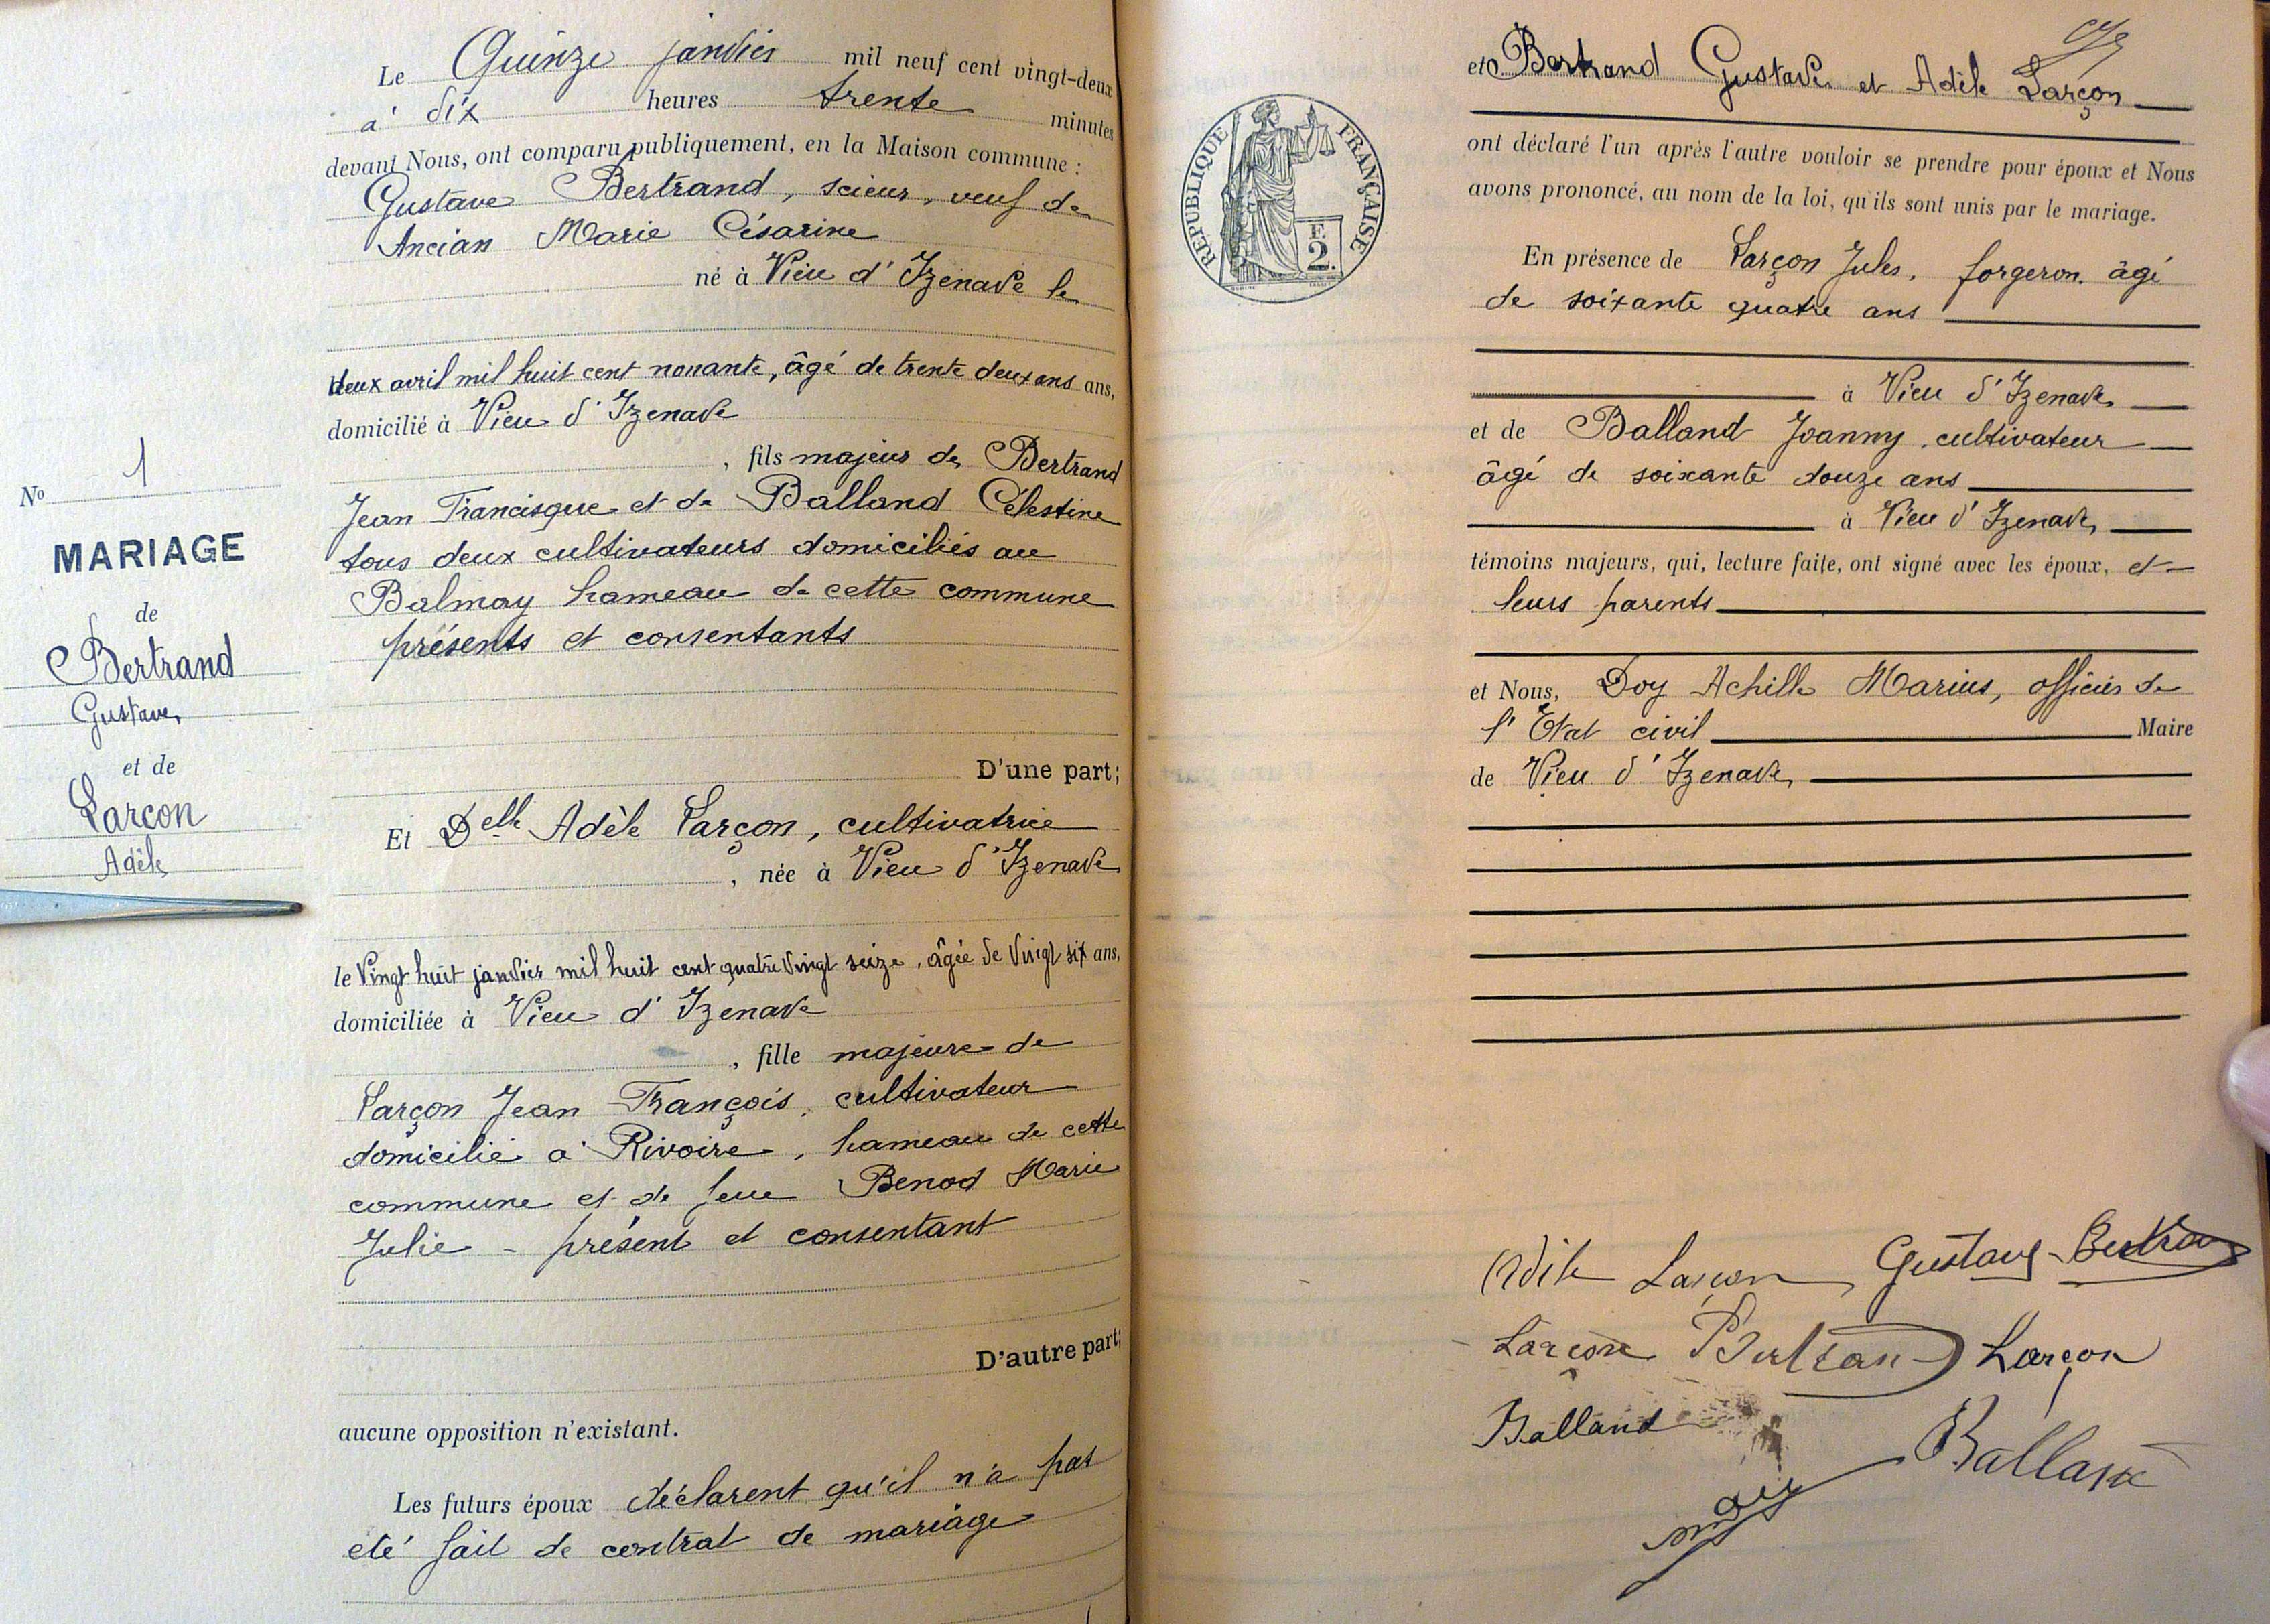 Le Quinze janvier mil neuf cent vingt-deux
à dix heures trente minutes
devant Nous, ont comparu publiquement, en la Maison commune :
Gustave Bertrand, scieur, veuf de
Ancian Marie Césarine
né à Vieu d'Izenave le
deux avril mil huit cent nonante, âgé de trente deux ans ans,
domicilié à Vieu d'Izenave
, fils majeur de Bertrand
Jean Francisque et de Balland Célestine
tous deux cultivateurs domiciliés au
Balmay hameau de cette commune
présents et consentants
D'une part;
Nº 1
MARIAGE
de
Bertrand
Gustave
et de
Larcon
Adèle
Et Delle Adèle Larçon, cultivatrice
, née à Vieu d'Izenave
le Vingt huit janvier mil huit cent quatre vingt seize, âgée de Vingt six ans,
domiciliée à Vieu d'Izenave
, fille majeure de
Larçon Jean François, cultivateur
domicilié à Rivoire, hameau de cette
commune et de feue Benod Marie
Julie - présent et consentant
D'autre part;
aucune opposition n'existant.
Les futurs époux déclarent qu'il n'a pas
été fait de contrat de mariage
RÉPUBLIQUE FRANÇAISE
F.
2.
et Bertrand Gustave et Adèle Larçon
ont déclaré l'un après l'autre vouloir se prendre pour époux et Nous
avons prononcé, au nom de la loi, qu'ils sont unis par le mariage.
En présence de Larçon Jules, forgeron, âgé
de soixante quatre ans
à Vieu d'Izenave
et de Balland Joanny, cultivateur
âgé de soixante douze ans
à Vieu d'Izenave
témoins majeurs, qui, lecture faite, ont signé avec les époux, et
leurs parents
et Nous, Doy Achille Marius, officier de
l'Etat civil Maire
de Vieu d'Izenave
Adèle Larçon Gustave Bertrand
Larçon Bertrand Larçon
Balland Balland